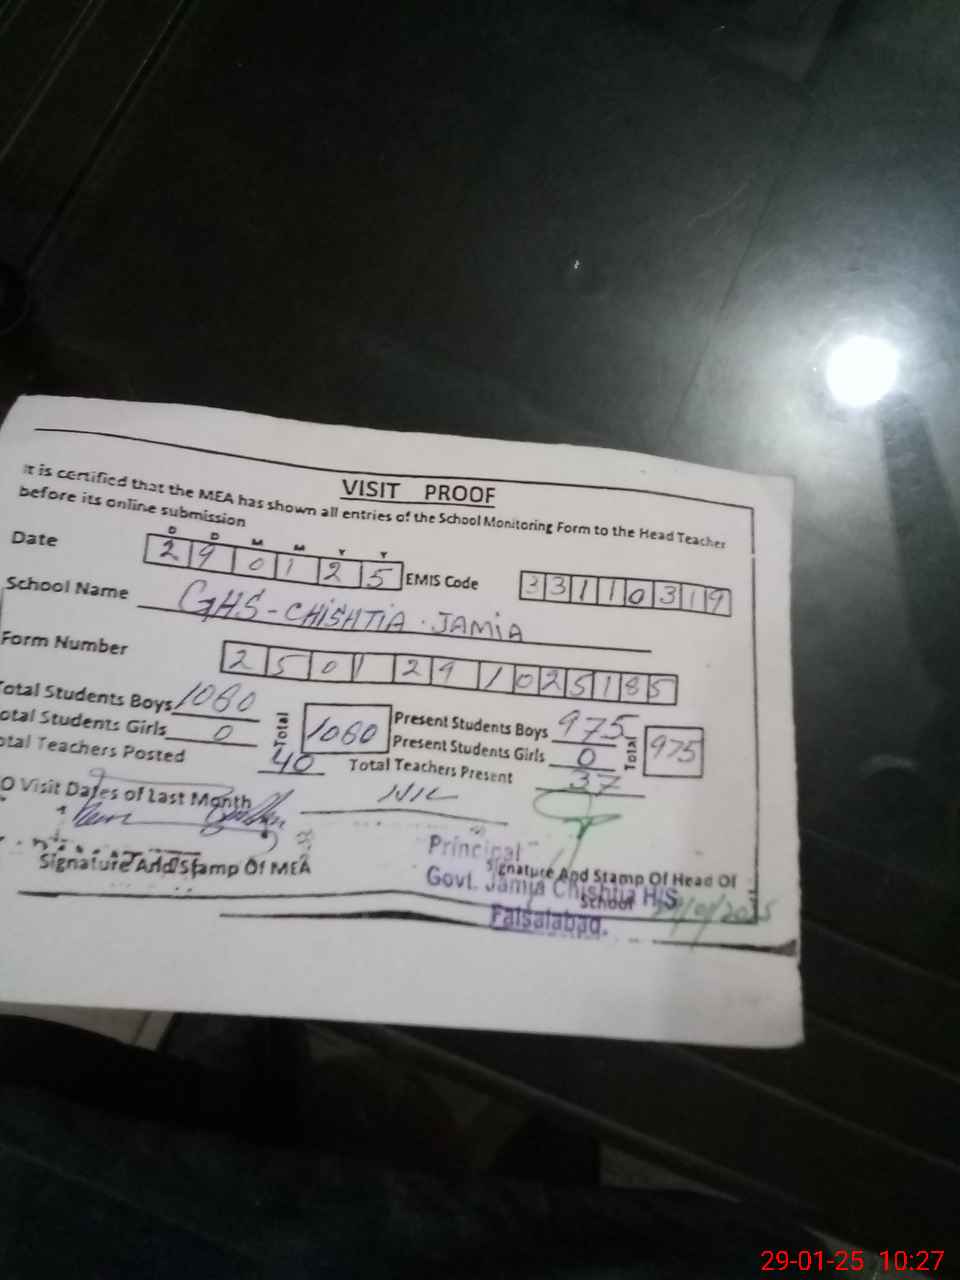 VISIT PROOF
It is certified that the MEA has shown all entries of the School Monitoring Form to the Head Teacher
before its online submission
D D M M Y Y
Date 2 9 0 1 2 5 EMIS Code 3 3 1 1 0 3 1 9
School Name GHS - CHISHTIA . JAMIA
Form Number 2 5 0 1 2 9 1 0 2 5 1 8 5
Total Students Boys 1080 Total 1080 Present Students Boys 975 Total 975
otal Students Girls 0 Present Students Girls 0
otal Teachers Posted 40 Total Teachers Present 37
O Visit Dates of Last Month NIL
Signature And Stamp Of MEA
Principal
Signature And Stamp Of Head Of
School
Govt. Jamia Chishtia H/S
Faisalabad.
29-01-25 10:27